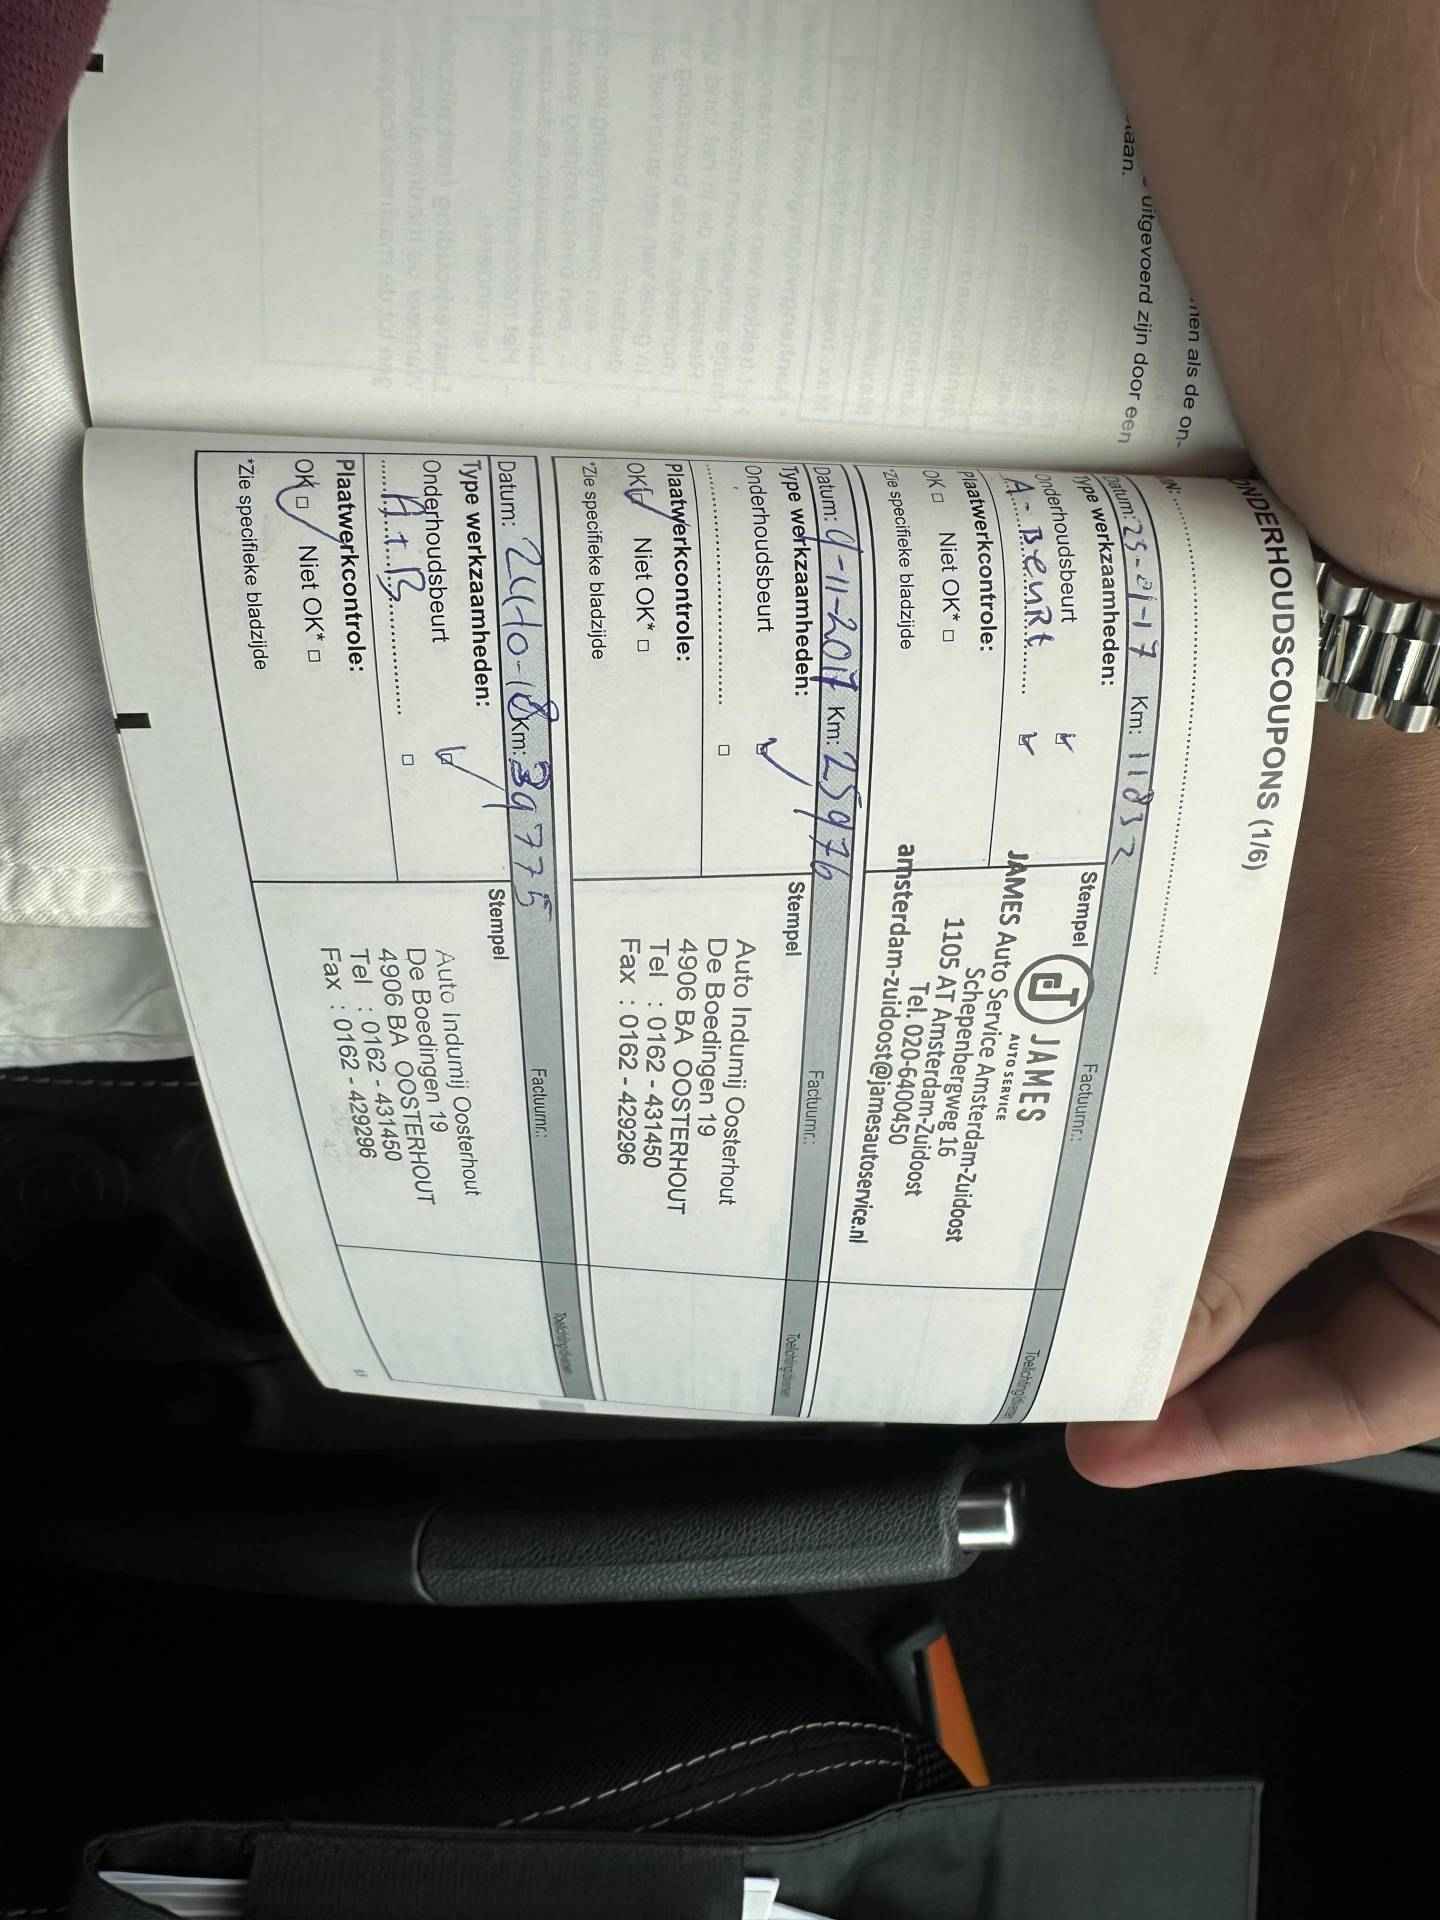 taan.
uitgevoerd zijn door een
men als de on-
ONDERHOUDSCOUPONS (1/6)
Datum: 25-01-17 Km: 11832
Factuurnr.:
Type werkzaamheden:
Onderhoudsbeurt
A-Beurt
Plaatwerkcontrole:
OK □ Niet OK* □
*Zie specifieke bladzijde
Stempel
JAMES
AUTO SERVICE
JAMES Auto Service Amsterdam-Zuidoost
Schepenbergweg 16
1105 AT Amsterdam-Zuidoost
Tel. 020-6400450
amsterdam-zuidoost@jamesautoservice.nl
Datum: 9-11-2017 Km: 25976
Factuurnr.:
Type werkzaamheden:
Onderhoudsbeurt
Plaatwerkcontrole:
OK Niet OK* □
*Zie specifieke bladzijde
Stempel
Auto Indumij Oosterhout
De Boedingen 19
4906 BA OOSTERHOUT
Tel : 0162 - 431450
Fax : 0162 - 429296
Datum: 24-10-18 Km: 39775
Factuurnr.:
Type werkzaamheden:
Onderhoudsbeurt
A+B
Plaatwerkcontrole:
OK □ Niet OK* □
*Zie specifieke bladzijde
Stempel
Auto Indumij Oosterhout
De Boedingen 19
4906 BA OOSTERHOUT
Tel : 0162 - 431450
Fax : 0162 - 429296